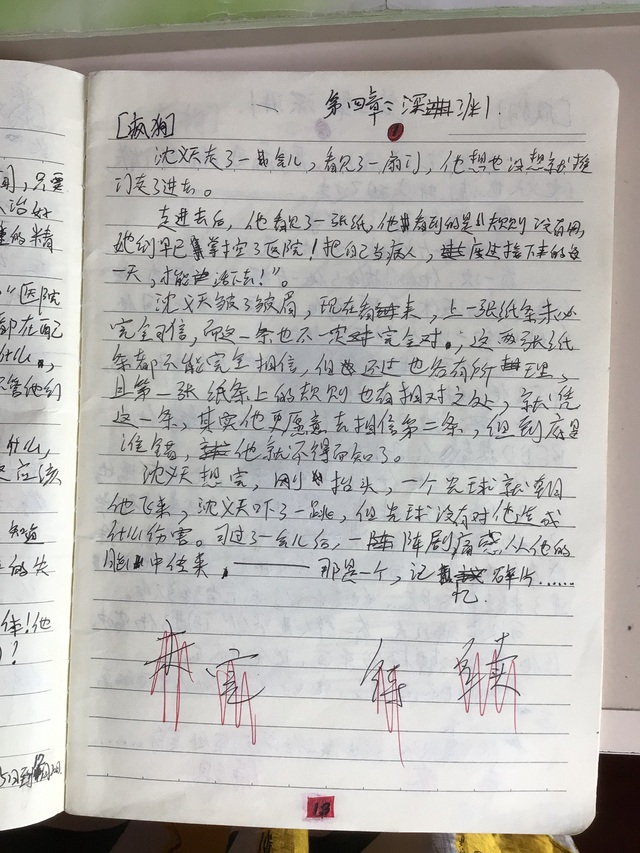 间，只要
人治好
的精
"医院
都在自己
什么。
不管他们
什么，
应该
知道
的失
体！他
？
第四章：深
[疯狗]
沈义天走了一会儿，看见了一扇门，他想也没想就推
门走了进去。
走进去后，他看见了一张纸，他看到的是"规则没有用，
她们早已掌控了医院！把自己当病人，度过接下来的每
一天，才能活下去！"。
沈义天皱了皱眉，现在看来，上一张纸条未必
完全可信，而这一条也不一定完全对。；这两张纸
条都不能完全相信，但还过也各有所理，
且第一张纸条上的规则也有相对之处，就凭
这一条，其实他更愿意去相信第二条，但到底是
谁错，他就不得而知了。
沈义天想完，刚抬头，一个光球就朝
他飞来，沈义天吓了一跳，但光球没有对他造成
什么伤害。可过了一会儿后，一阵阵剧痛感从他的
脑中传来，——那是一个，记忆碎片……
未完 待续
13